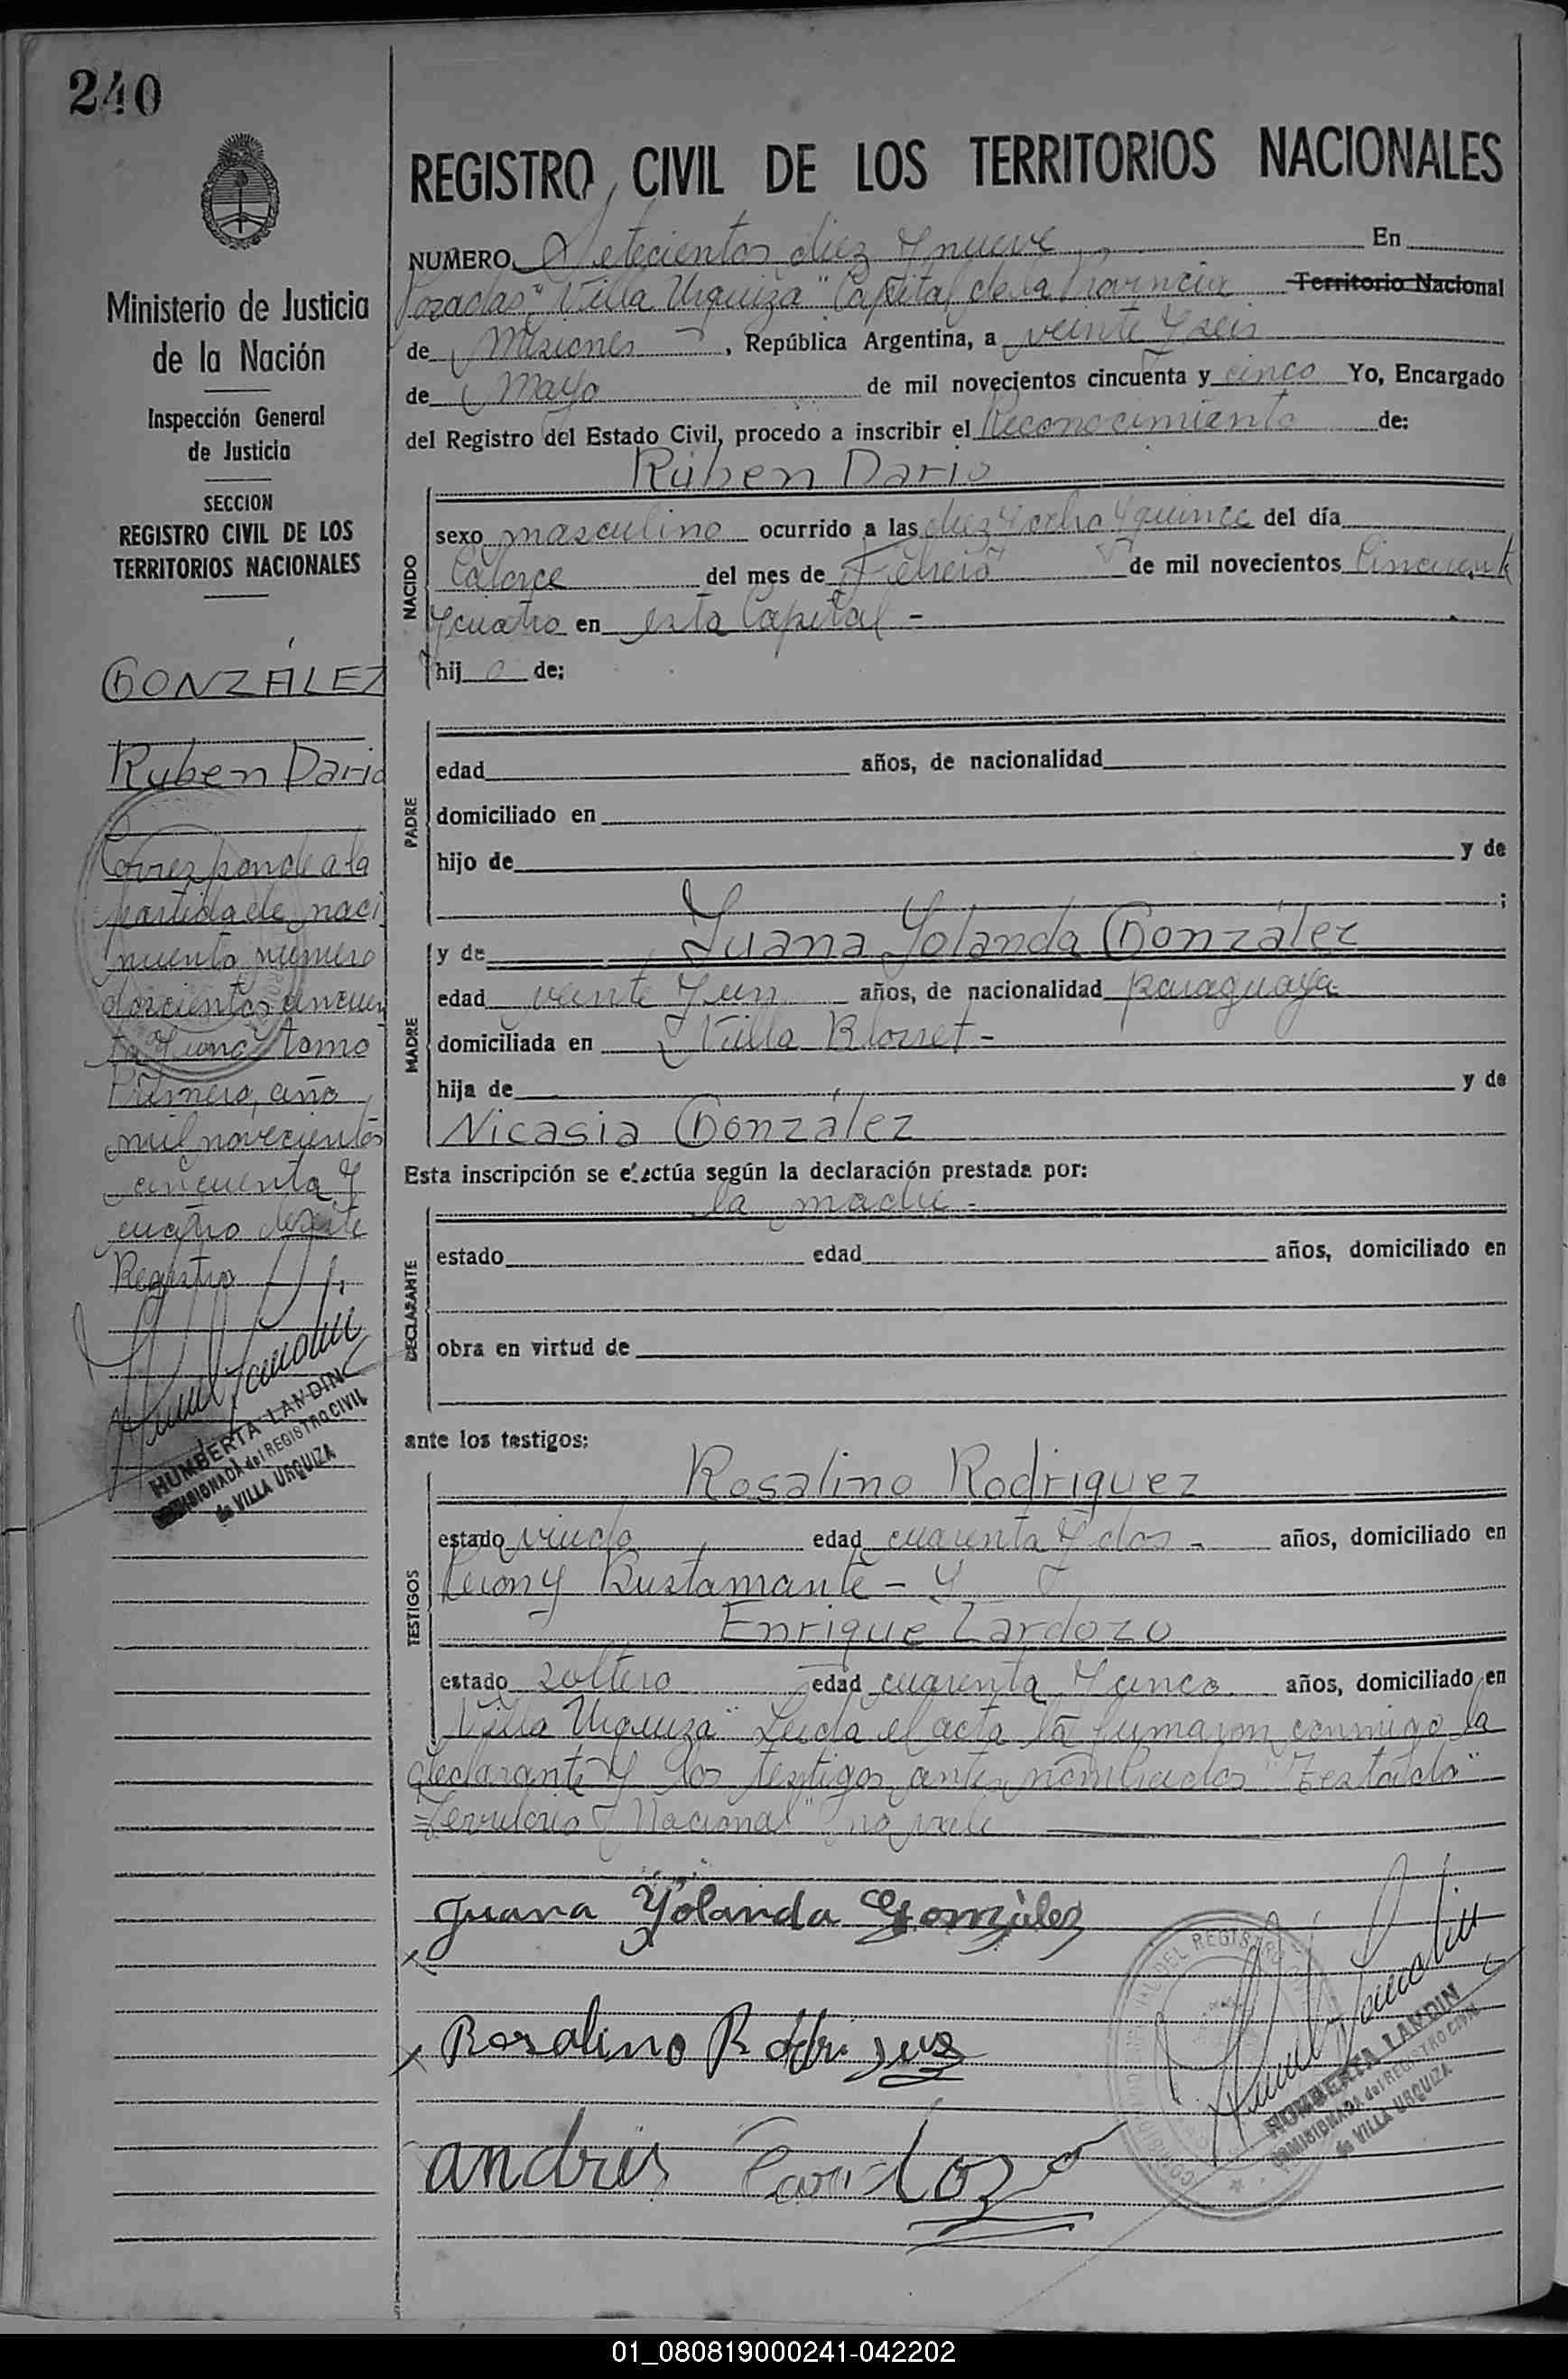 240
REGISTRO CIVIL DE LOS TERRITORIOS NACIONALES
Ministerio de Justicia
de la Nación
Inspección General
de Justicia
SECCION
REGISTRO CIVIL DE LOS
TERRITORIOS NACIONALES
GONZÁLEZ
Ruben Dario
Corresponde a la
partida de naci
miento número
doscientos cincuen
ta y uno tomo
Primero, año
mil novecientos
cincuenta y
cuatro de este
Registro
HUMBERTA LANDIN
COMISIONADA del REGISTRO CIVIL
de VILLA URQUIZA
NUMERO Setecientos diez y nueve En
Posadas "Villa Urquiza" Capital de la Provincia Territorio Nacional
de Misiones, República Argentina, a veinte y seis
de Mayo de mil novecientos cincuenta y cinco Yo, Encargado
del Registro del Estado Civil, procedo a inscribir el Reconocimiento de:
Rúben Dario
NACIDO
sexo masculino ocurrido a las diez y ocho y quince del día
Catorce del mes de Febrero de mil novecientos Cincuenta
y cuatro en esta Capital -
hij o de:
PADRE
edad años, de nacionalidad
domiciliado en
hijo de y de
;
MADRE
y de Juana Yolanda González
edad veinte y un años, de nacionalidad paraguaya
domiciliada en Villa Blosset -
hija de y de
Nicasia González
Esta inscripción se efectúa según la declaración prestada por:
la madre -
DECLARANTE
estado edad años, domiciliado en
obra en virtud de
ante los testigos:
TESTIGOS
Rosalino Rodriguez
estado viudo edad cuarenta y dos - años, domiciliado en
Perón y Bustamante - y
Enrique Cardozo
estado soltero edad cuarenta y cinco años, domiciliado en
"Villa Urquiza" Leida el acta la firmaron conmigo la
declarante y los testigos antes nombrados "Testado"
"Territorio Nacional" no vale
Juana Yolanda Gonzàlez
Rosalino Rodriguez
andres Cardozo
HUMBERTA LANDIN
COMISIONADA del REGISTRO CIVIL
de VILLA URQUIZA
01_080819000241-042202